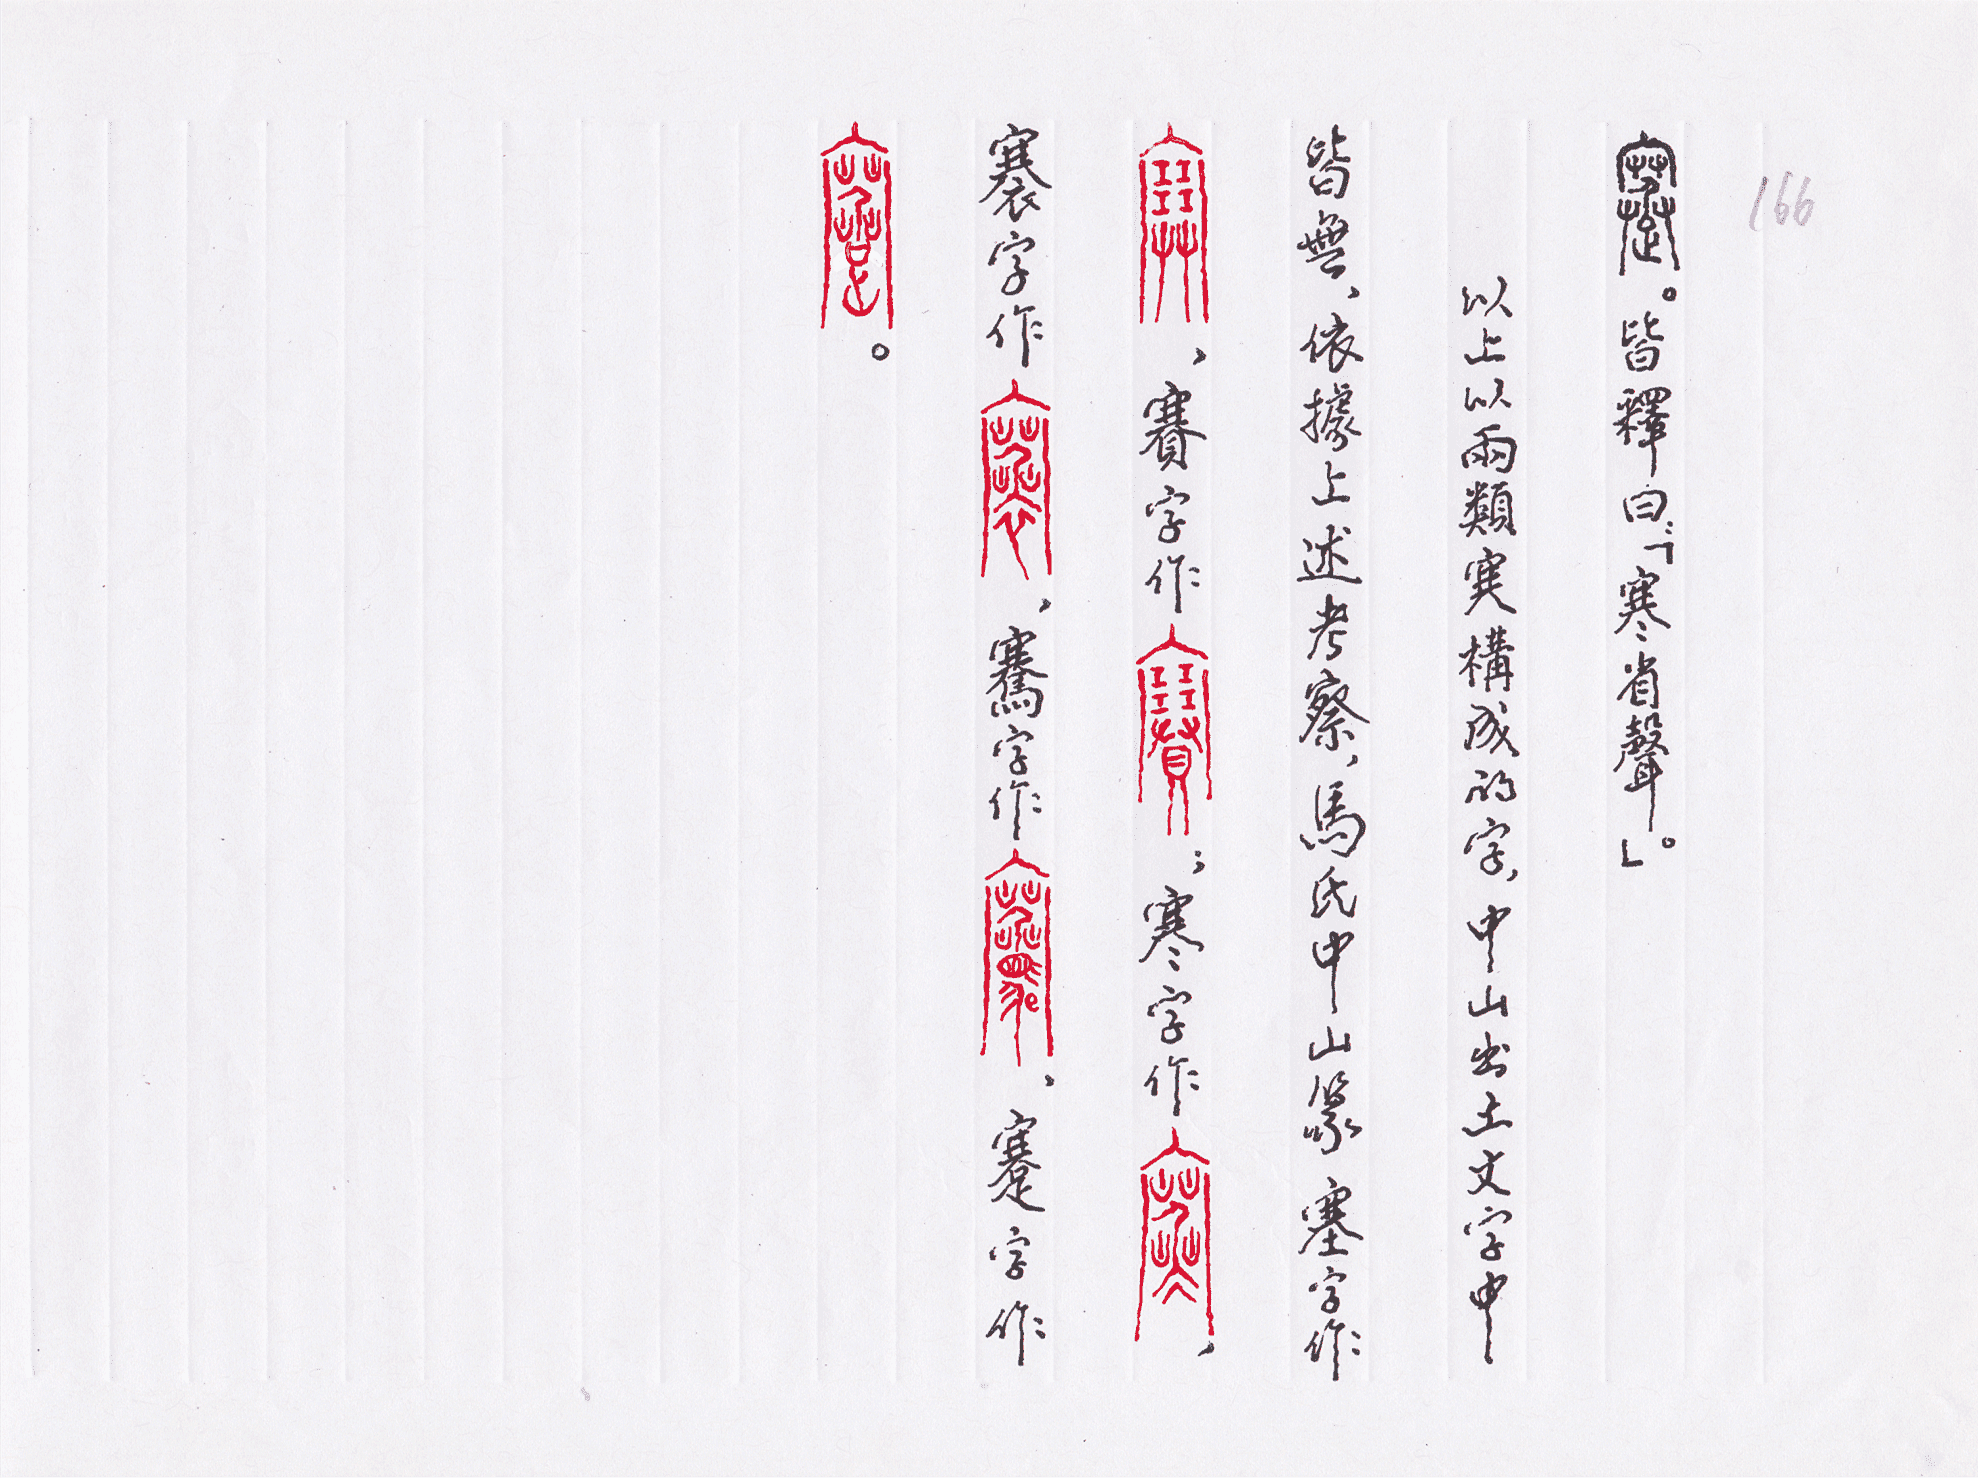 166
。皆釋曰:「寒省聲。」
以上以兩類寒構成的字,中山出土文字中
皆無、依據上述考察,馬氏中山篆塞字作
、賽字作;寒字作、
褰字作、騫字作、蹇字作
。